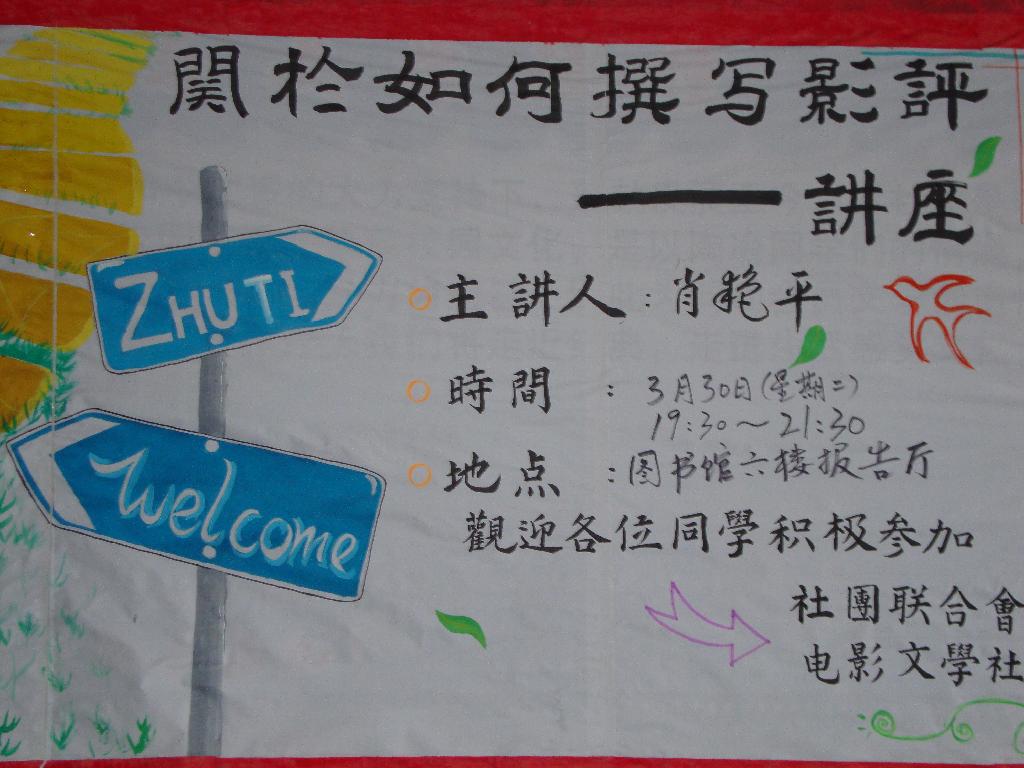 関於如何撰写影評
——講座
ZHUTI
主講人:肖艳平
時間:3月30日(星期二)
19:30~21:30
Welcome
地点:图书馆六楼报告厅
觀迎各位同學积极参加
社團联合會
电影文學社